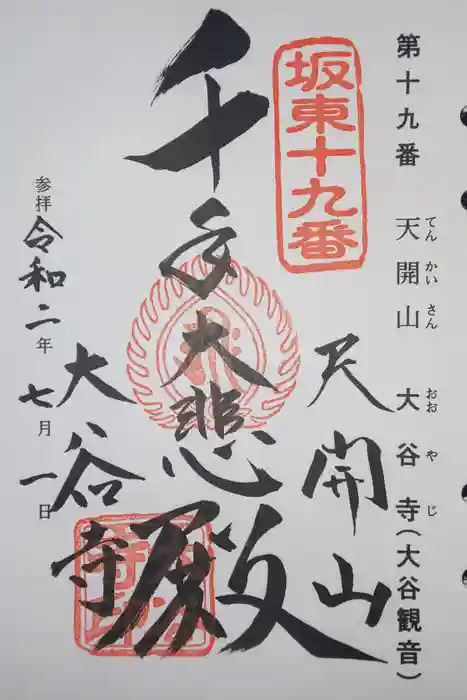 第十九番 天開山 大谷寺(大谷観音)
てんかいさん おおやじ
坂東十九番
天開山
千手大悲殿
大谷寺
参拝 令和二年七月一日